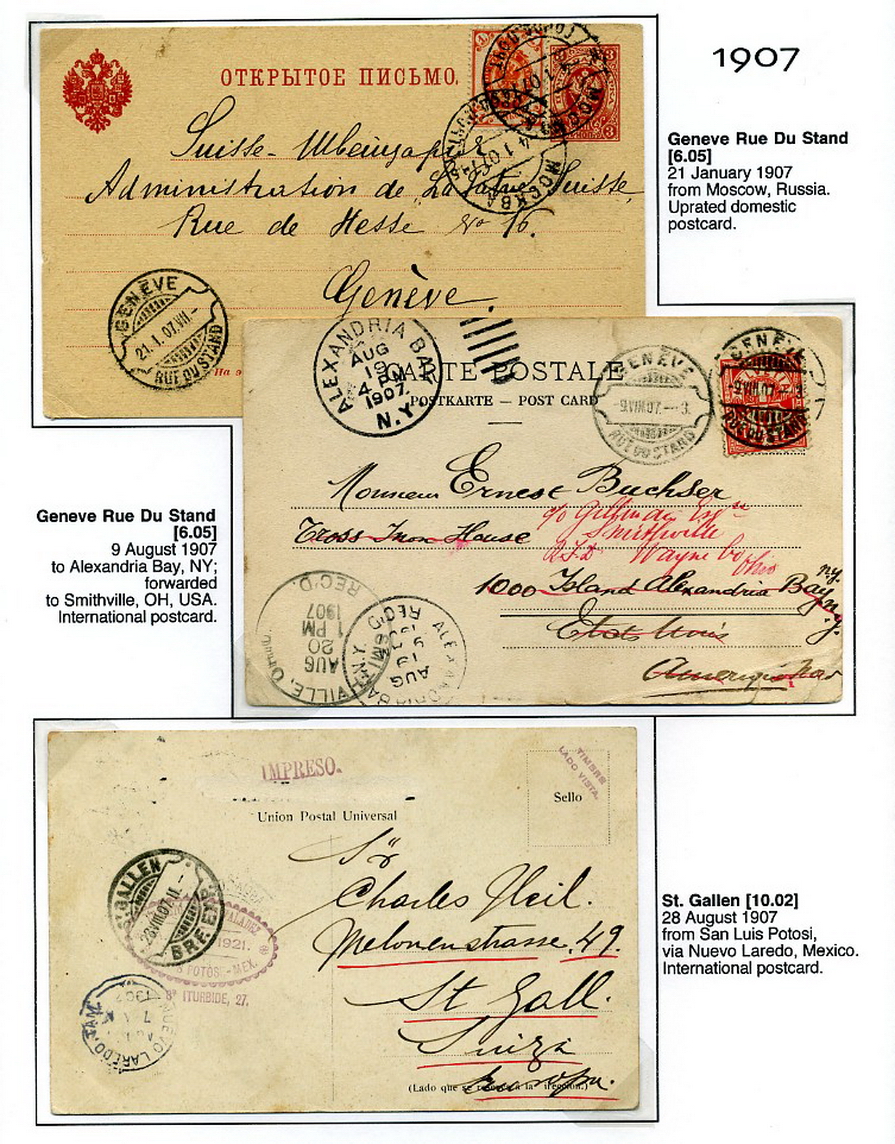 1907
ОТКРЫТОЕ ПИСЬМО.
3
3
МОСКВА
4.1.07
Suisse - Швейцарія
Administration de "La Patrie Suisse,
Rue de Hesse No 16.
Genève.
GENÈVE
21.I.07.VII.-
RUE DU STAND
Geneve Rue Du Stand
[6.05]
21 January 1907
from Moscow, Russia.
Uprated domestic
postcard.
ALEXANDRIA BAY
AUG
19
4 PM
1907.
N.Y.
CARTE POSTALE
POSTKARTE — POST CARD
GENÈVE
-9.VIII.07.--3.
RUE DU STAND
GENÈVE
-9.VIII.07.
RUE DU STAND
Monsieur Ernest Buchser
Cross Inon House
c/o Gillinder Esqre
Smithville
R.F.D Wayne Co
Ohio
1000 Island Alexandria Bay
N.Y.
Etats Unis
REC'D.
1907
1 PM
20
AUG
ALEXANDRIA BAY N.Y.
AUG
19
REC'D
Geneve Rue Du Stand
[6.05]
9 August 1907
to Alexandria Bay, NY;
forwarded
to Smithville, OH, USA.
International postcard.
IMPRESO.
TIMBRE
LADO VISTA.
Sello
Union Postal Universal
Sr
Charles Heil
Melonenstrasse 49.
St Gall.
Suiza
Europa.
ST GALLEN
28.VIII.07.11.-
BRF. EXP.
1921.
POTOSI - MEX.
ITURBIDE, 27.
NUEVO LAREDO, TAM.
1907
(Lado que se
St. Gallen [10.02]
28 August 1907
from San Luis Potosi,
via Nuevo Laredo, Mexico.
International postcard.